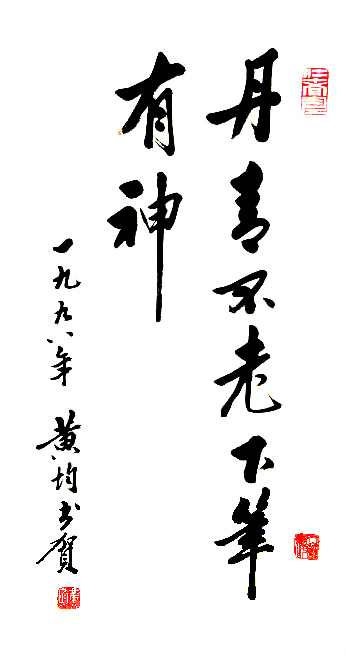 丹青不老下筆
有神
一九九八年 黄均书贺